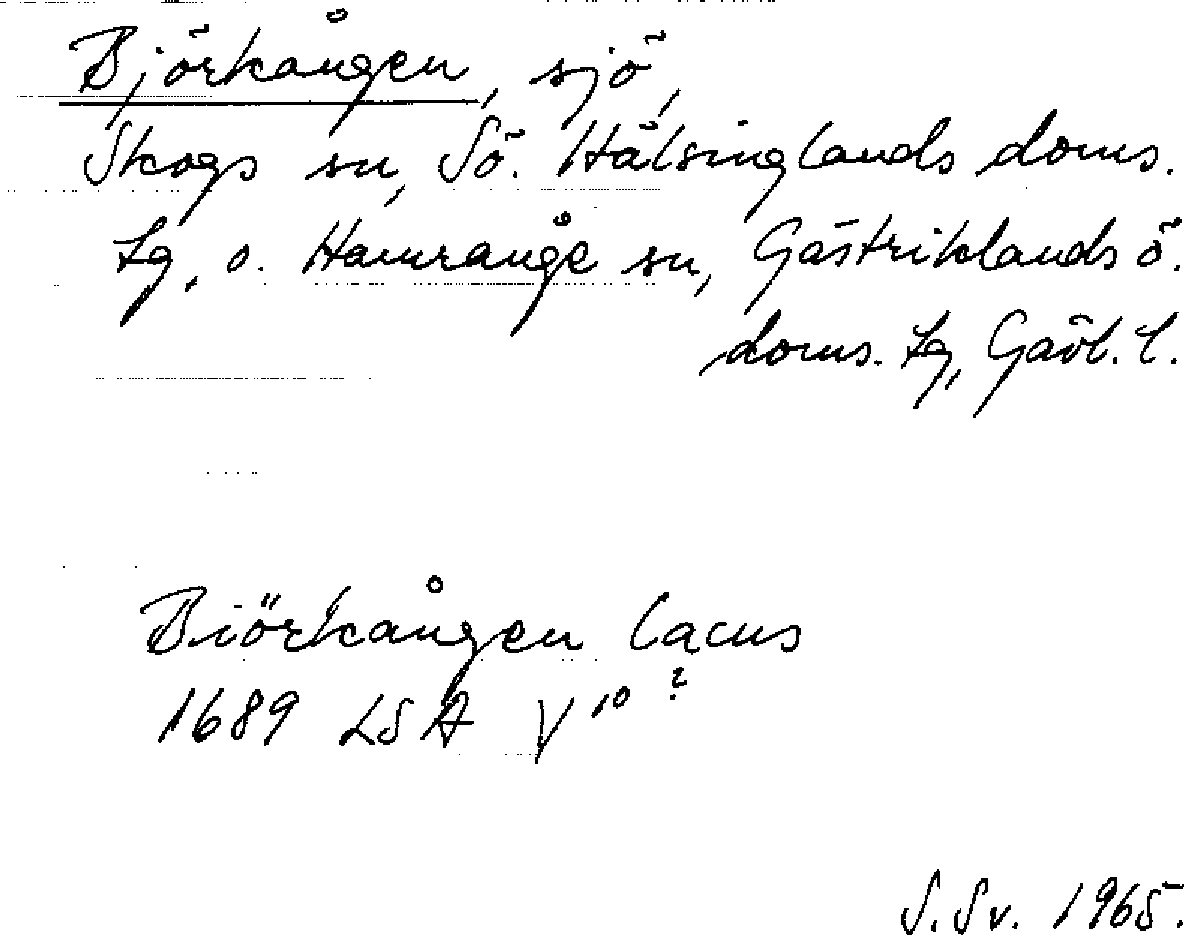 Björkången, sjö,
Skogs sn, Sö. Hälsinglands doms.
tg, o. Hamrånge sn, Gästriklands ö.
doms. tg, Gävl. l.
Biörkången lacus
1689 LSA V 10 ?
S. Sv. 1965.